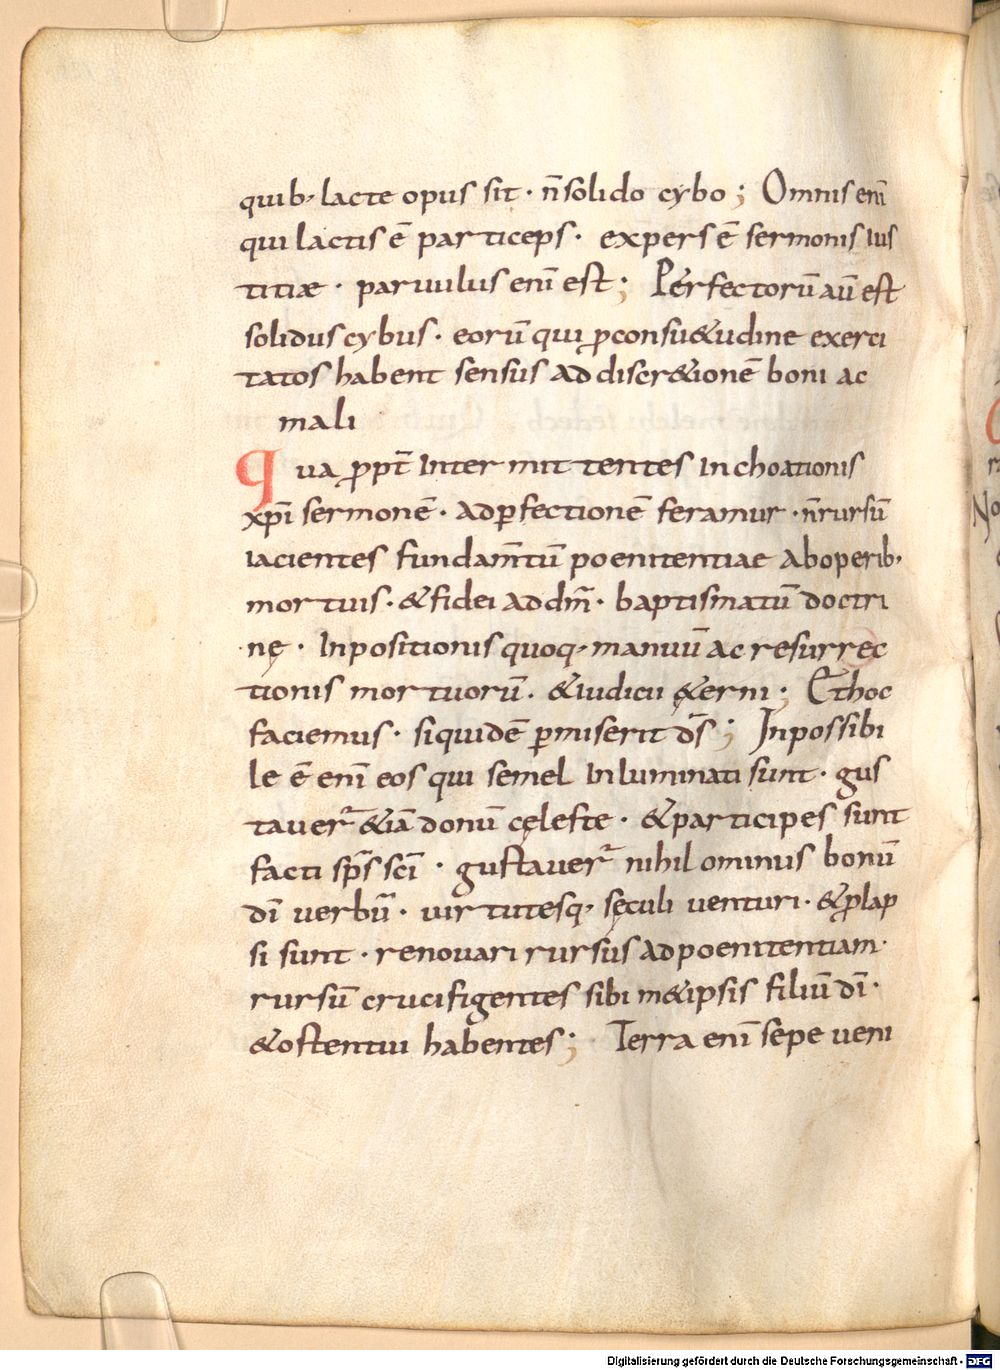 quib· lacte opus sit · n̄ solido cybo ; Omnis enī
qui lactis ē particeps · expers ē sermonis ius
titiæ · parvulus enī est ; Perfectorū aū est
solidus cybus · eorū qui ꝓ consu&udine exerci
tatos habent sensus ad discr&ionē boni ac
mali
Qua ꝓpt̄ intermittentes inchoationis
xp̄i sermonē · ad ꝑfectionē feramur · n̄ rursū
iacientes fundam̄tū poenitentiae ab operib·
mortuis · & fidei ad dm̄ · baptismatū doctri
nę · Inpositionis quoq· manuū ac resurrec
tionis mortuorū · & iudicii &erni ; Et hoc
faciemus · siquidē ꝑmiserit ds̄ ; Inpossibi
le ē enī eos qui semel inluminati sunt · gus
taver̄ &iā donū cęleste · & participes sunt
facti sps̄ scī · gustaver̄ nihilominus bonū
dī verbū · virtutesq· sęculi venturi · & ꝓlap
si sunt · renovari rursus ad poenitentiam ·
rursū crucifigentes sibim&ipsis filiū dī ·
& ostentui habentes ; Terra enī sepe veni
Digitalisierung gefördert durch die Deutsche Forschungsgemeinschaft - DFG